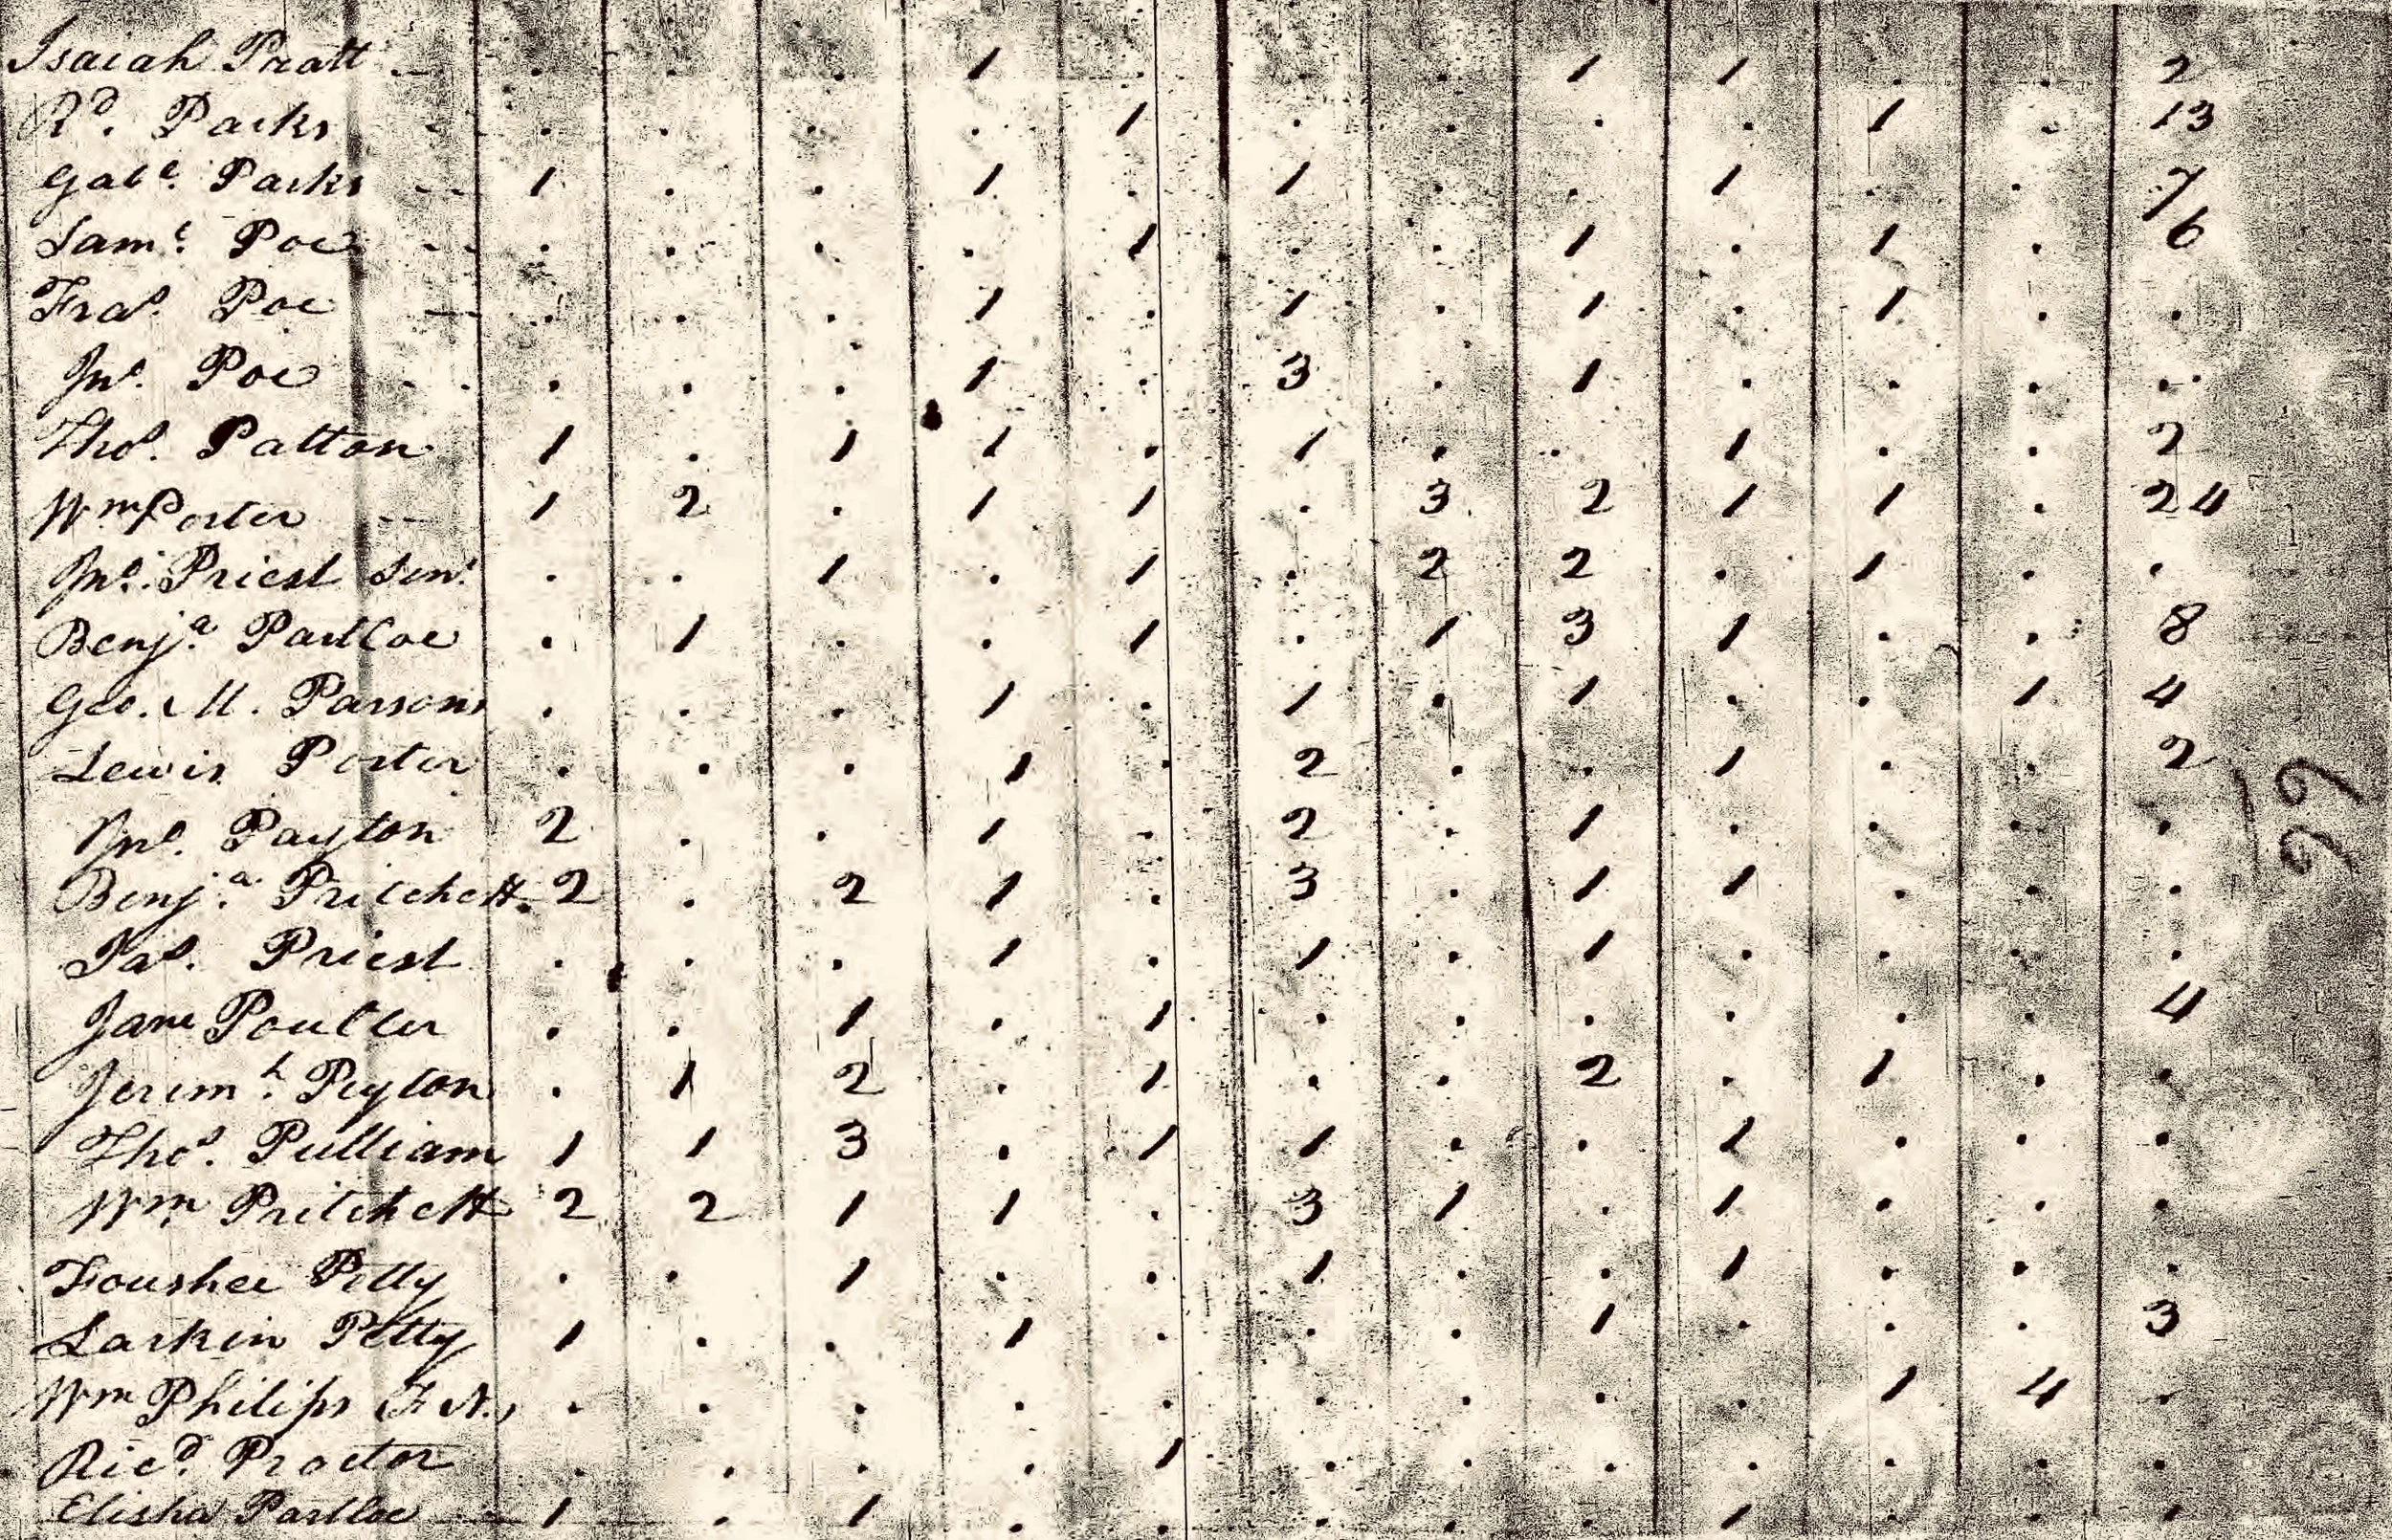 Isaiah Pratt -- . . . 1 . . . 1 1 . . 2
Rd. Parks - . . . . 1 . . . . 1 . 13
Gabl. Parks -- 1 . . 1 . 1 . . 1 . . 7
Saml. Poe -- . . . . 1 . . 1 . 1 . 6
Fras. Poe -- . . . 1 . 1 . 1 . 1 . .
Jno. Poe . . . . . 1 . 3 . 1 . . . .
Thos. Patton 1 . 1 1 . 1 . . 1 . . 2
Wm Porter -- 1 2 . 1 1 . 3 2 1 1 . 24
Jno. Priest Senr . . 1 . 1 . 2 2 . 1 . .
Benja. Partloe . 1 . . 1 . 1 3 1 . . 8
Geo. M. Parsons . . . 1 . 1 . 1 . . 1 4
Lewis Porter . . . 1 . 2 . . 1 . . 2
Jno. Payton 2 . . 1 . 2 . 1 . . . .
Benja. Pritchett. 2 . 2 1 . 3 . 1 1 . . .
Jas. Priest . . . 1 . 1 . 1 . . . .
Jane Poulter . . 1 . 1 . . . . . . 4
Jeremh. Peyton . 1 2 . 1 . . 2 . 1 . .
Thos. Pulliam 1 1 3 . 1 1 . . 1 . . .
Wm. Pritchett 2 2 1 1 . 3 1 . 1 . . .
Foushee Petty . . 1 . . 1 . . 1 . . .
Larkin Petty 1 . . 1 . . . 1 . . . 3
Wm Philips F.N., . . . . . . . . . 1 4 .
Ricd. Proctor . . . . 1 . . . . . . .
Elisha Partloe -- 1 . 1 . . . . . 1 . . .